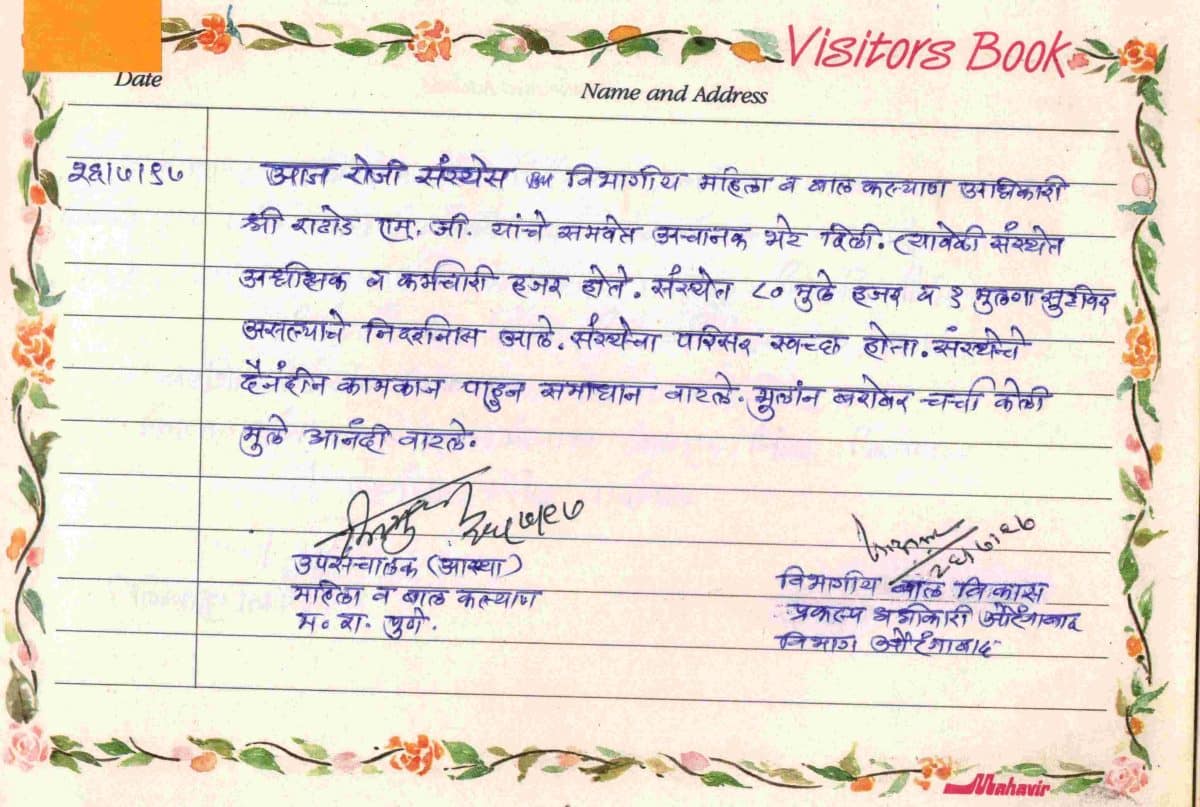 Visitors Book
Date
Name and Address
२६/७/९७ आज रोजी संस्थेस विभागीय महिला व बाल कल्याण अधिकारी
श्री राठोड एम्. जी. यांचे समवेत अचानक भेट दिली. त्यावेळी संस्थेत
अधीक्षक व कर्मचारी हजर होते. संस्थेत ८० मुले हजर व १ मुलगा सुट्टीवर
असल्याचे निदर्शनास आले. संस्थेचा परिसर स्वच्छ होता. संस्थेचे
दैनंदीन कामकाज पाहुन समाधान वाटले. मुलांन बरोबर चर्चा केली
मुले आनंदी वाटले.
उपसंचालक (आस्था)
महिला व बाल कल्याण
म. रा. पुणे.
२६/७/९७
विभागीय बाल विकास
प्रकल्प अधिकारी औरंगाबाद
विभाग औरंगाबाद
Mahavir